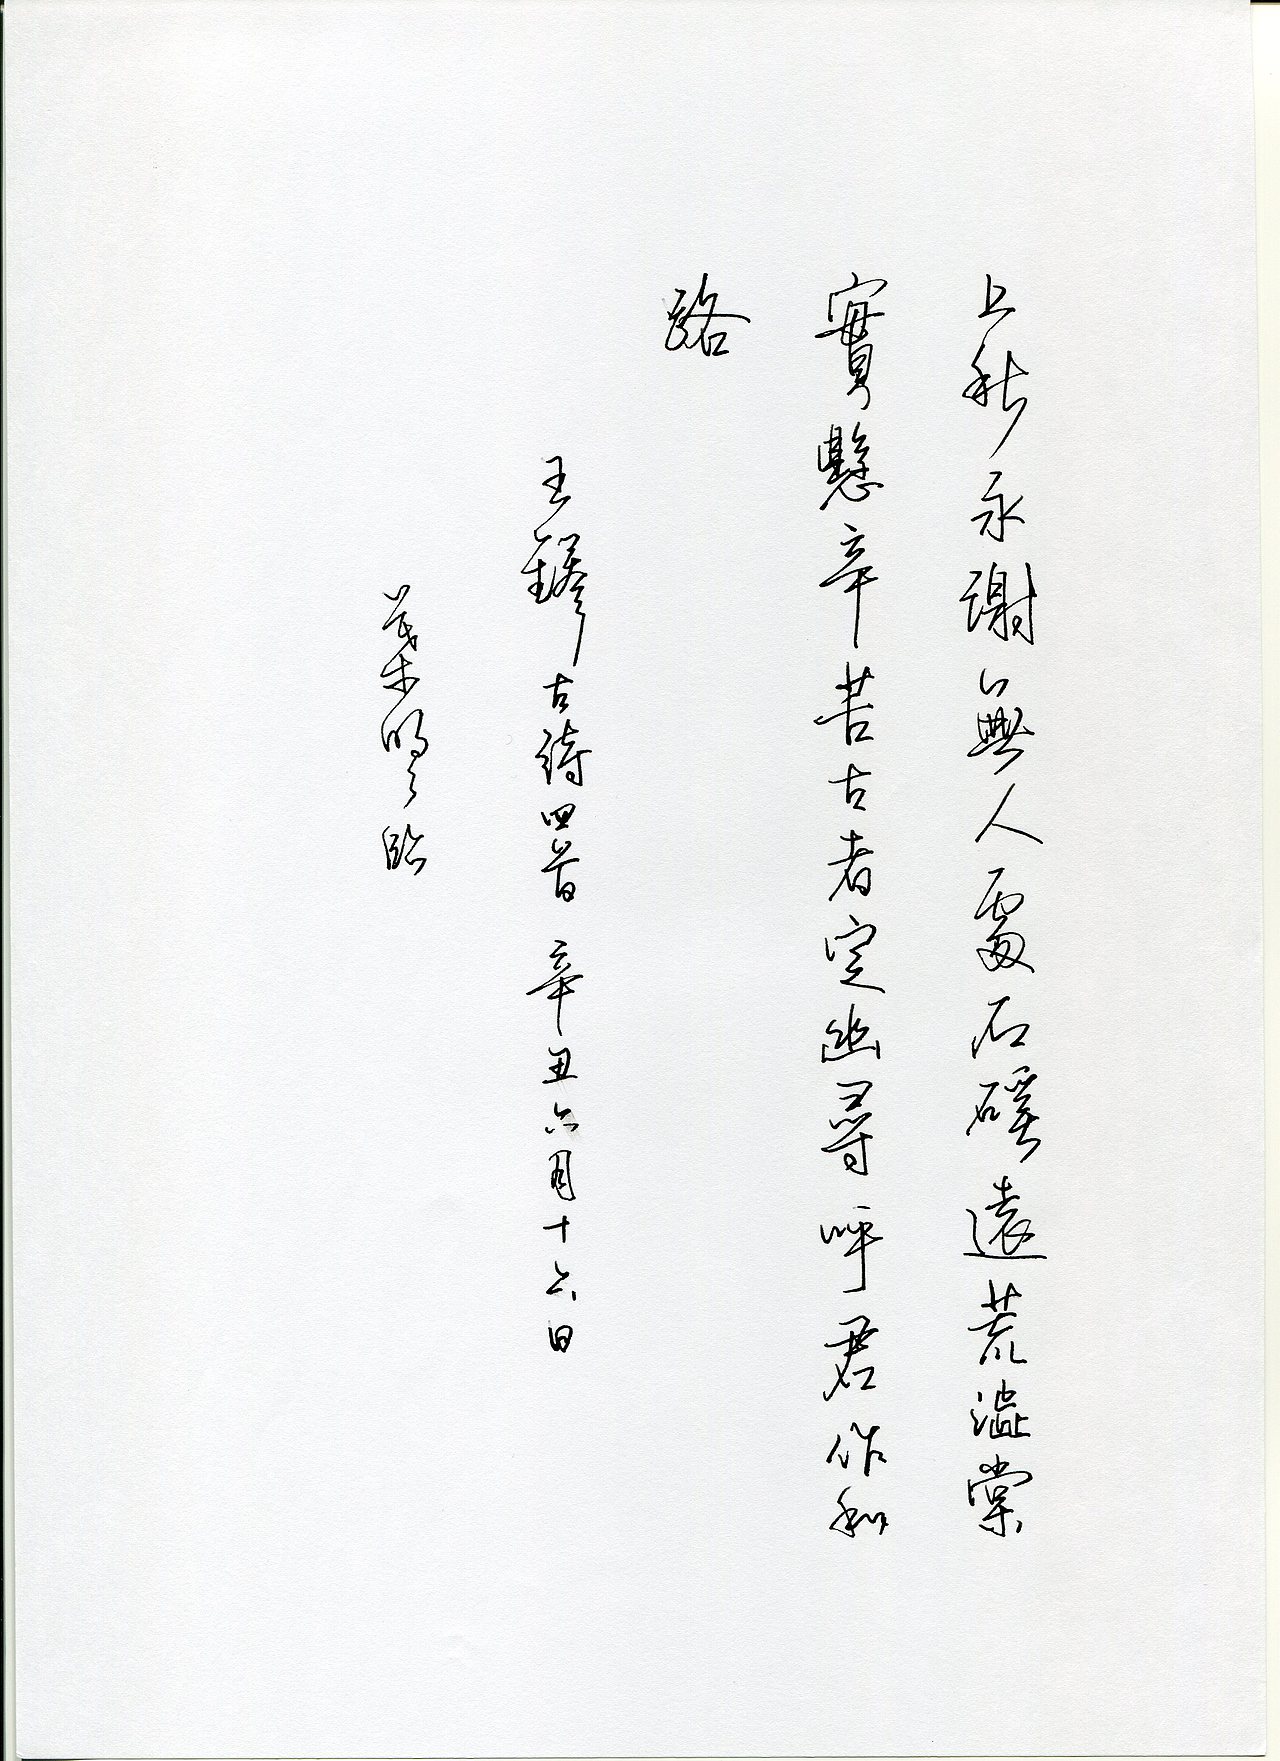 上秋永謝無人處石磎遠荒澁棠
實懸辛苦古者定幽尋呼君作和
路
王鐸古詩四首 辛丑六月十六日
葉明之臨